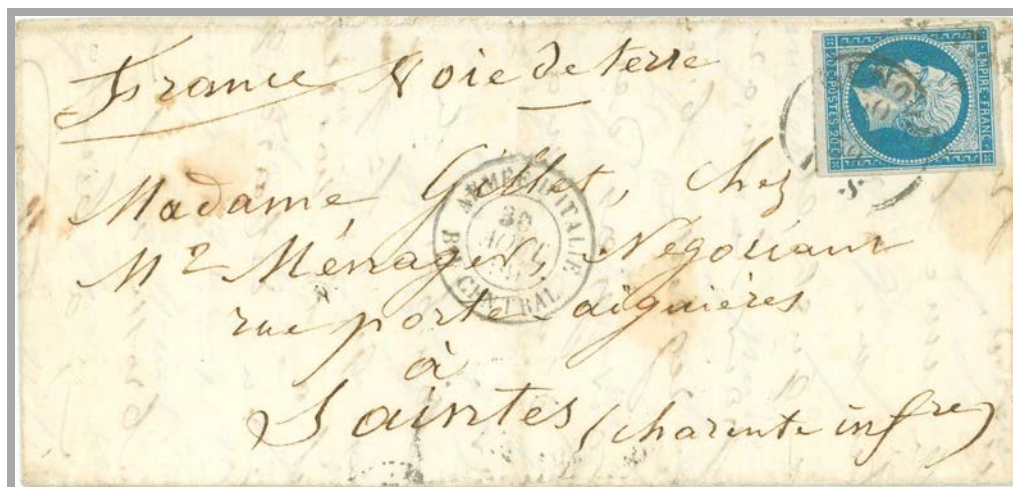 France Voie de terre
EMPIRE FRANC.
20 C. POSTES 20 C.
Madame Gollet, chez
Mr Ménager, Négociant
rue porte aiguières
à
Saintes (charente infre)
ARMEE D'ITALIE
30
AOUT
BAU CENTRAL